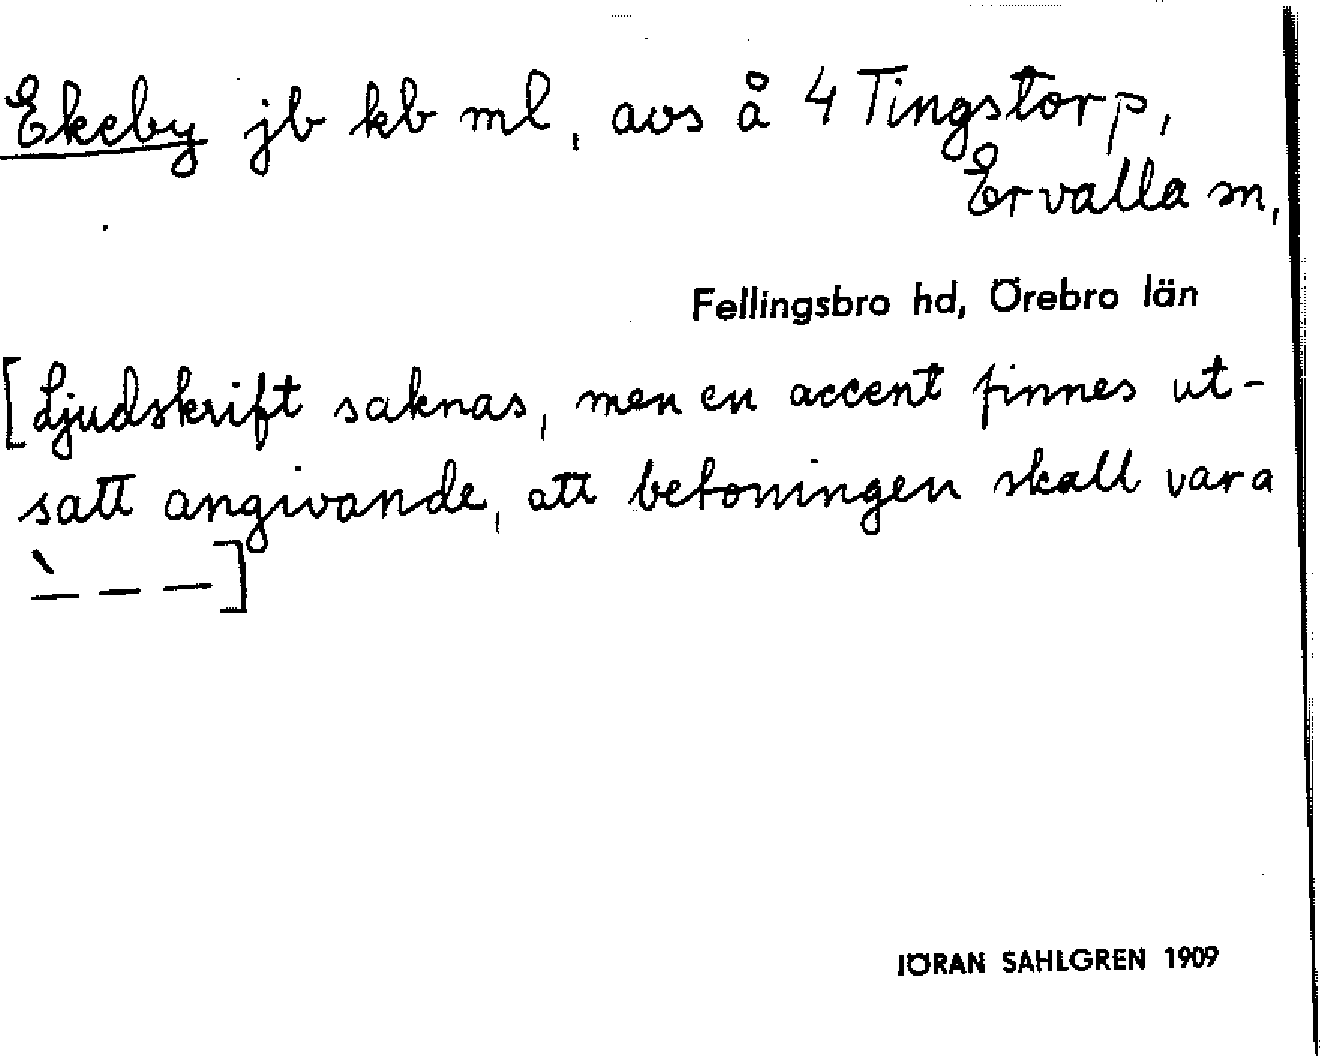 Ekeby jb kb ml, avs å 4 Tingstorp,
Ervalla sn,
Fellingsbro hd, Örebro län
[Ljudskrift saknas, men en accent finnes ut-
satt angivande, att betoningen skall vara
`– – –]
JÖRAN SAHLGREN 1909